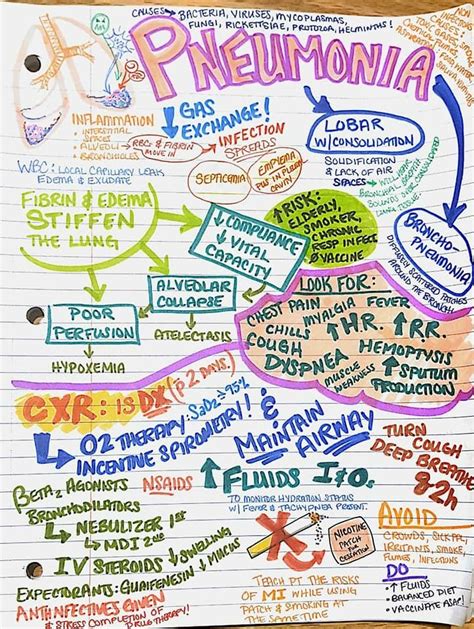 CAUSES → BACTERIA, VIRUSES, MYCOPLASMAS,
FUNGI, RICKETTSIAE, PROTOZOA, HELMINTHS!
PNEUMONIA
INFLAMMATION
• INTERSTITIAL
SPACES
• ALVEOLI → RBCs & FIBRIN
MOVE IN
• BRONCHIOLES
↓ GAS
EXCHANGE!
→ INFECTION
SPREADS
SEPTICEMIA
EMPYEMA
PUS IN PLEURAL
CAVITY
LOBAR
W/CONSOLIDATION
SOLIDIFICATION
& LACK OF AIR
SPACES
BRONCHO-
PNEUMONIA
DIFFUSELY SCATTERED PATCHES
AROUND THE BRONCHI
WBC: LOCAL CAPILLARY LEAK
EDEMA & EXUDATE
FIBRIN & EDEMA
STIFFEN
THE LUNG
↓ COMPLIANCE
↓ VITAL
CAPACITY
↑ RISK:
ELDERLY,
SMOKER,
CHRONIC
RESP INFECT
Ø VACCINE
ALVEOLAR
COLLAPSE
ATELECTASIS
POOR
PERFUSION
HYPOXEMIA
LOOK FOR:
CHEST PAIN
MYALGIA
FEVER
CHILLS
↑ H.R.
↑ RR.
COUGH
HEMOPTYSIS
DYSPNEA
MUSCLE
WEAKNESS
↑ SPUTUM
PRODUCTION
CXR: IS DX (p̄ 2 DAYS)
→ O2 THERAPY: SaO2 ≥ 95%
→ INCENTIVE SPIROMETRY! &
MAINTAIN
AIRWAY
TURN
COUGH
DEEP BREATHE
q2h
BETA2 AGONISTS
BRONCHODILATORS
→ NEBULIZER 1st
→ MDI 2nd
NSAIDS
↑ FLUIDS I&Os.
TO MONITOR HYDRATION STATUS
W/ FEVER & TACHYPNEA PRESENT.
IV STEROIDS ↓ SWELLING
EXPECTORANTS: GUAIFENESIN ↓ MUCUS
ANTIINFECTIVES GIVEN
& STRESS COMPLETION OF
DRUG THERAPY!
NICOTINE
PATCH
FOR
CESSATION
TEACH PT THE RISKS
OF MI WHILE USING
PATCH & SMOKING AT
THE SAME TIME.
AVOID
CROWDS, SICK PPL,
IRRITANTS, SMOKE,
FUMES, INFECTIONS
DO
• ↑ FLUIDS
• BALANCED DIET
• VACCINATE ASAP!